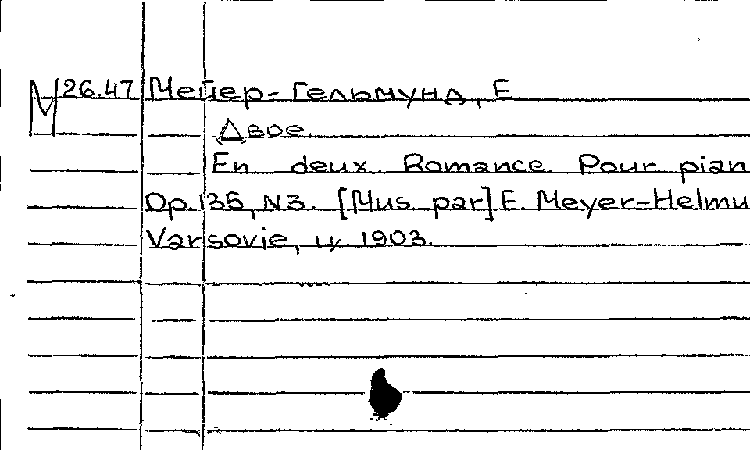 М 26.47 Мейер-Гельмунд, Е
Двое.
En deux. Romance. Pour pian
Op. 135, N3. [Mus. par] E. Meyer-Helmu
Varsovie, ц/ 1903.